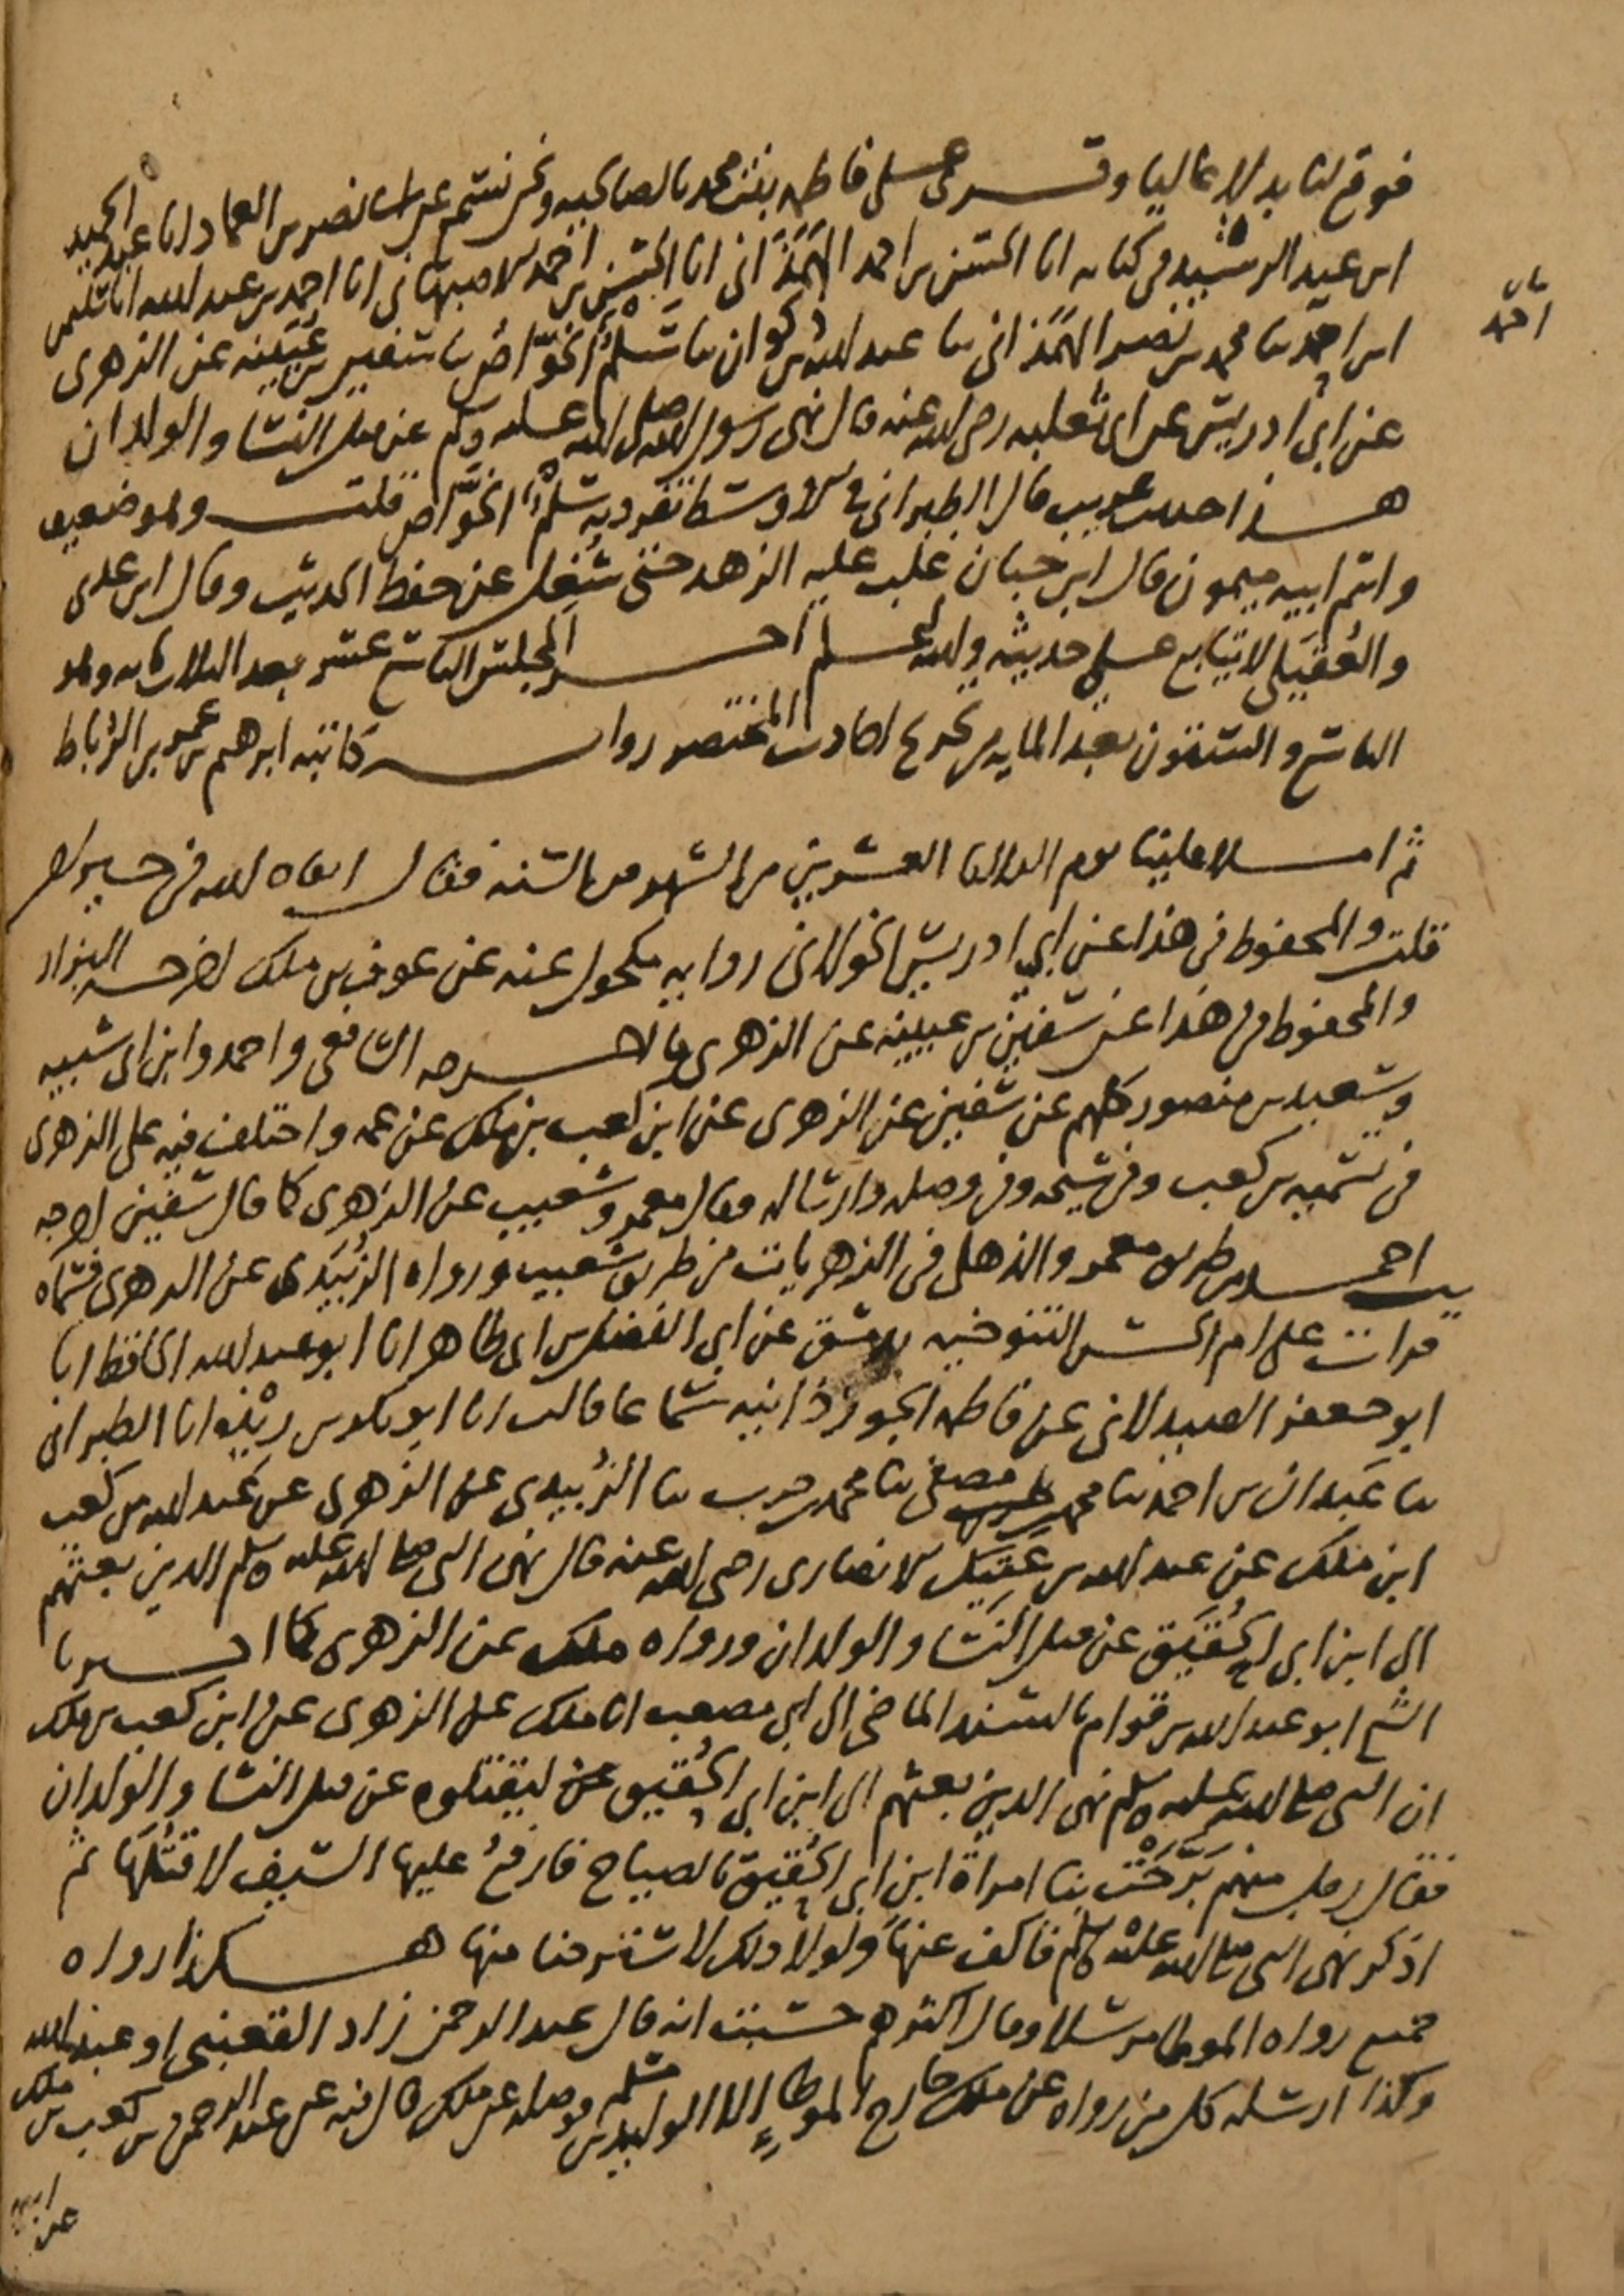 فوقع لنا بدلا عاليا وقرئ على فاطمه بنت محمد بالصالحيه ونحن نسمع عن ابي نصر بن العماد انا عبد الحميد
ابن عبد الرشيد في كتابه انا الحسن بن احمد الهمذاني انا الحسن بن احمد الاصبهاني انا احمد بن عبد الله انا سليمن
احمد
ابن احمد ثنا محمد بن نصر الهمذاني ثنا عبد الله بن ذكوان ثنا سلم الخواص ثنا سفين بن عيينه عن الزهري
عن ابي ادريس عن ابي ثعلبه رضي الله عنه قال نهى رسول الله صلى الله عليه وسلم عن قتل النسا والولدان
هذا حديث غريب قال الطبراني في الاوسط تفرد به سلم الخواص قلت وهو ضعيف
واسم ابيه ميمون قال ابن حبان غلب عليه الزهد حتى شغل عن حفظ الحديث وقال ابن عدي
والعقيلي لا يتابع على حديثه والله اعلم اخر المجلس التاسع عشر بعد الثلاث مايه وهو
التاسع والستون بعد المايه من تخريج احاديث المختصر روايه كاتبه ابرهيم بن عمر بن الرباط
ثم املا علينا يوم الثلاثا العشرين من الشهر من السنه فقال ابقاه الله في خير
قلت والمحفوظ في هذا عن ابي ادريس الخولاني روايه مكحول عنه عن عوف بن ملك اخرجه البزار
والمحفوظ في هذا عن سفين بن عيينه عن الزهري ما اخرجه الشافعي واحمد وابن ابي شيبه
وسعيد بن منصور كلهم عن سفين عن الزهري عن ابن كعب بن ملك عن عمه واختلف فيه على الزهري
في تسميه بن كعب وفي شيخه وفي وصله وارساله فقال معمر وشعيب عن الزهري كما قال سفين اخرجه
احمد من طريق معمر والذهلي في الزهريات من طريق شعيب ورواه الزبيدي عن الزهري فسماه
قرات على ام الحسن التنوخيه بدمشق عن ابي الفضل بن ابي طاهر انا ابو عبد الله الحافظ انا
ابو جعفر الصيدلاني عن فاطمه الجوزذانيه سماعا قالت انا ابو بكر بن ريذه انا الطبراني
ثنا عبدان بن احمد ثنا محمد بن مصفى ثنا محمد بن حرب ثنا الزبيدي عن الزهري عن عبد الله بن كعب
ابن ملك عن عبد الله بن عتيك الانصاري رضي الله عنه قال نهى النبي صلى الله عليه وسلم الذين بعثهم
الى ابن ابي الحقيق عن قتل النسا والولدان ورواه ملك عن الزهري كما اخبرنا
الشيخ ابو عبد الله بن قوام بالسند الماضي الى ابي مصعب انا ملك عن الزهري عن ابن كعب بن ملك
ان النبي صلى الله عليه وسلم نهى الذين بعثهم الى ابن ابي الحقيق ليقتلوه عن قتل النسا والولدان
فقال رجل منهم برحت بنا امراة ابن ابي الحقيق بالصياح فارفع عليها السيف لاقتلها ثم
اذكر نهى النبي صلى الله عليه وسلم فاكف عنها ولولا ذلك لاسترحنا منها هكذا رواه
جميع رواه الموطا مرسلا وقال اكثرهم حسبت انه قال عبد الرحمن زاد القعنبي او عبد الله
وكذا ارسله كل من رواه عن ملك خارج الموطا الا الوليد بن مسلم فوصله عن ملك قال فيه عن عبد الرحمن بن كعب بن ملك
عن